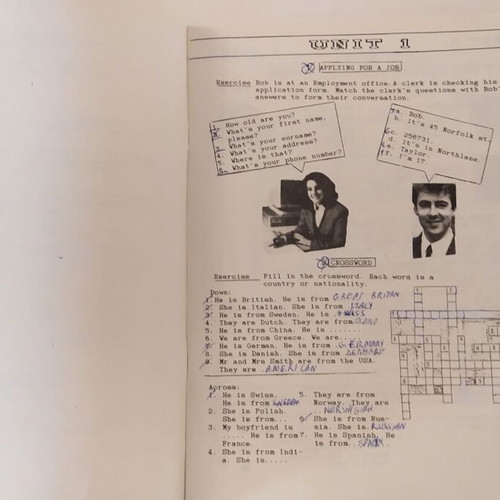 UNIT 1
APPLYING FOR A JOB
Exercise Bob is at an Employment office. A clerk is checking his
application form. Match the clerk's questions with Bob's
answers to form their conversation.
1. How old are you?
What's your first name,
please?
3. What's your surname?
4. What's your address?
5. Where is that?
6. What's your phone number?
a. Bob.
b. It's 45 Norfolk st.
c. 256731.
d. It's in Northlane.
e. Taylor.
f. I'm 17.
CROSSWORD
Exercise Fill in the crossword. Each word is a
country or nationality.
Down:
1. He is British. He is from GREAT BRITAN
2. She is Italian. She is from ITALY
3. He is from Sweden. He is
4. They are Dutch. They are from
5. He is from China. He is .......
6. We are from Greece. We are....
He is German. He is from GERMANY
8. She is Danish. She is from DENMARK
9. Mr and Mrs Smith are from the USA.
They are AMERICAN
Across:
1. He is Swiss.
He is from
2. She is Polish.
She is from...
3. My boyfriend is
..... He is from
France.
4. She is from Indi-
a. She is.....
5. They are from
Norway. They are
..NORWEGIAN
She is from Rus-
sia. She is RUSSIAN
7. He is Spanish. He
is from SPAIN